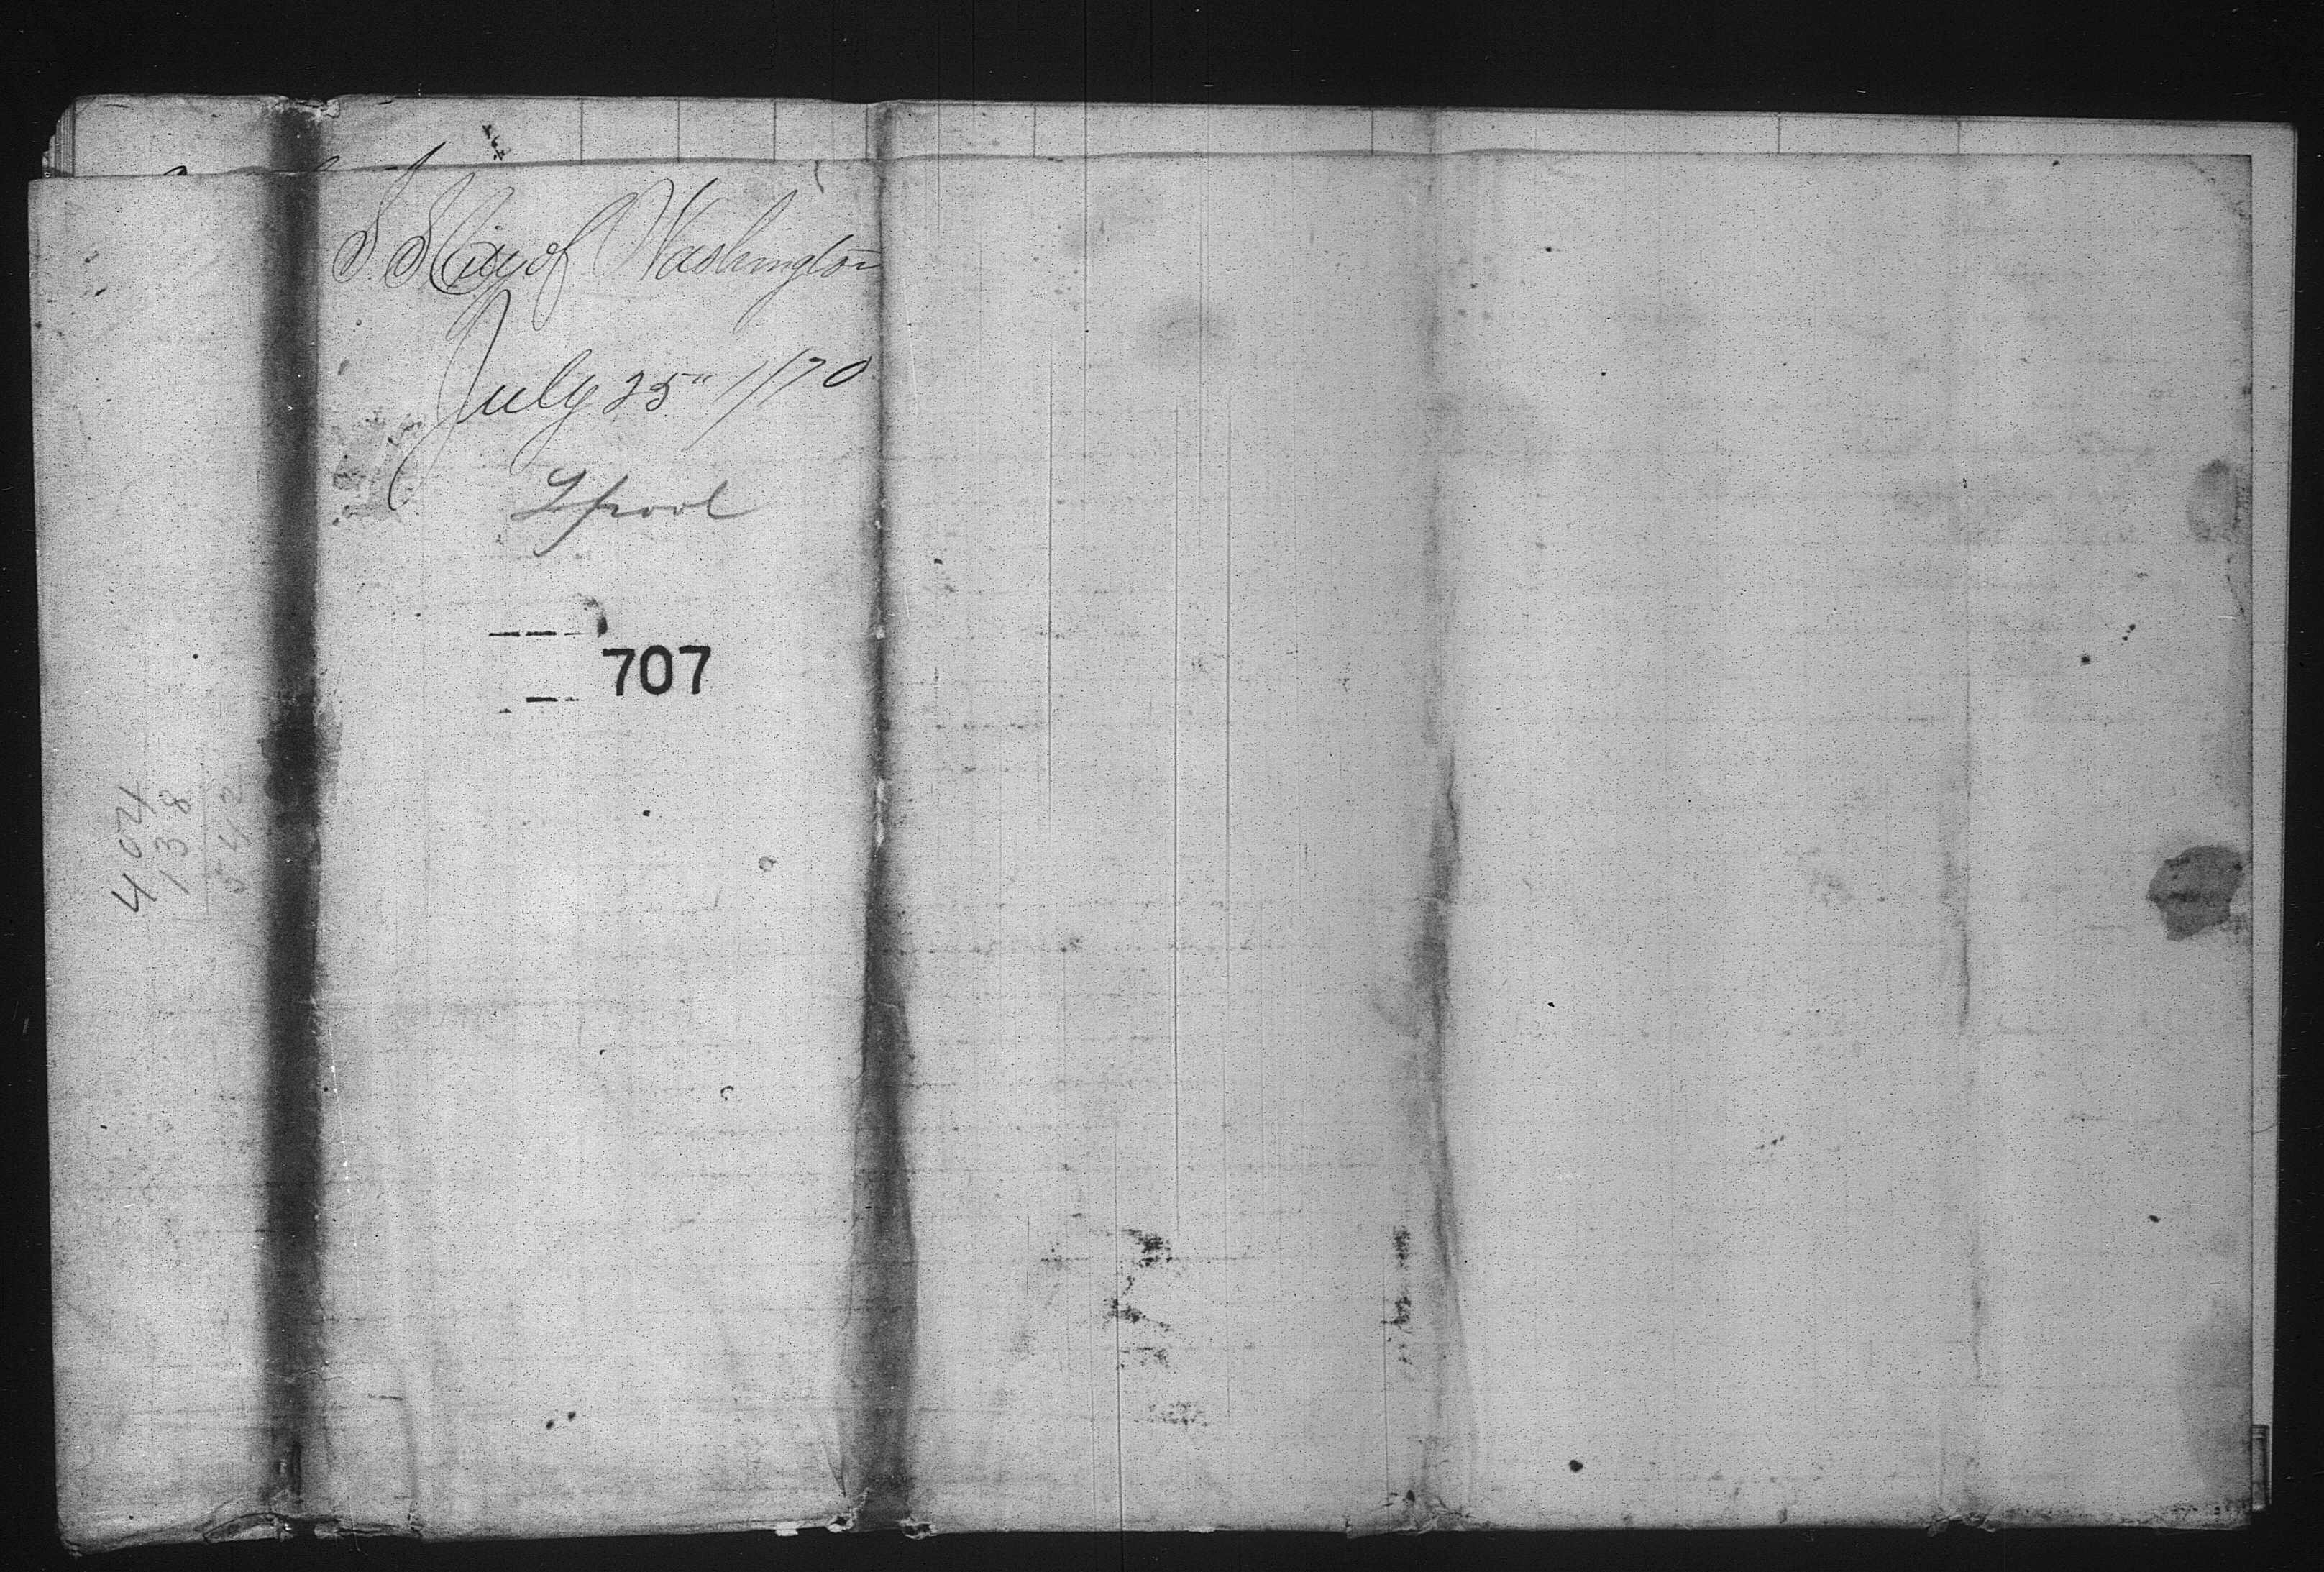 S. S. City of Washington
July 25" 1870
Lpool
707
404
138
542